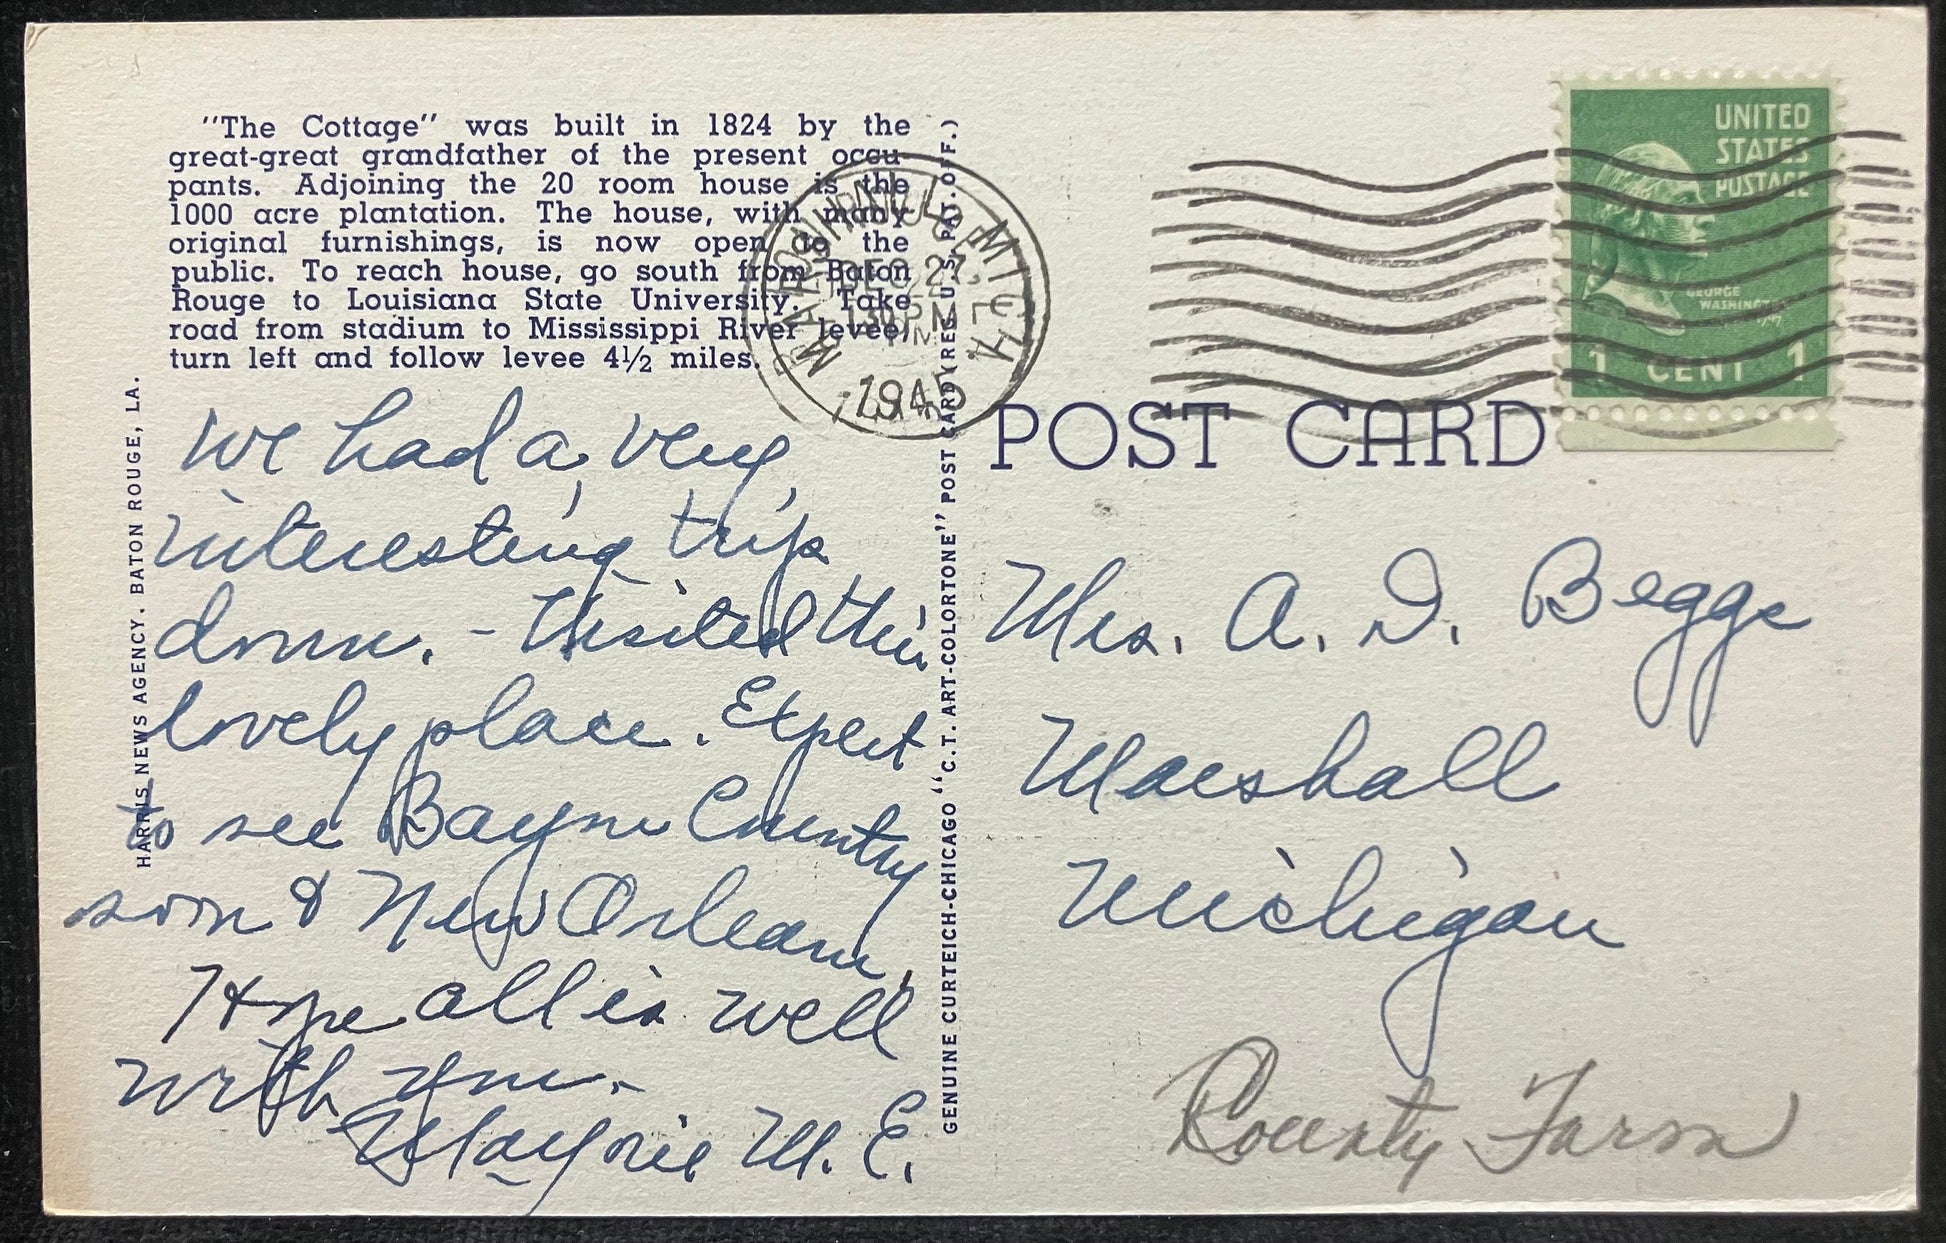 "The Cottage" was built in 1824 by the
great-great grandfather of the present occu-
pants. Adjoining the 20 room house is the
1000 acre plantation. The house, with many
original furnishings, is now open to the
public. To reach house, go south from Baton
Rouge to Louisiana State University. Take
road from stadium to Mississippi River levee,
turn left and follow levee 4½ miles.
HARRIS NEWS AGENCY. BATON ROUGE, LA.
We had a very
interesting trip
down. - Visited this
lovely place. Expect
to see Bayou Country
soon & New Orleans.
Hope all is well
with you. -
Marjorie M. E.
GENUINE CURTEICH-CHICAGO "C.T. ART-COLORTONE" POST CARD (REG. U.S. PAT. OFF.)
MARSHALL MICH.
DEC 27
PM
1945
UNITED
STATES
POSTAGE
GEORGE
WASHINGTON
1 CENT 1
POST CARD
Mrs. A. D. Beggs
Marshall
Michigan
County Farm